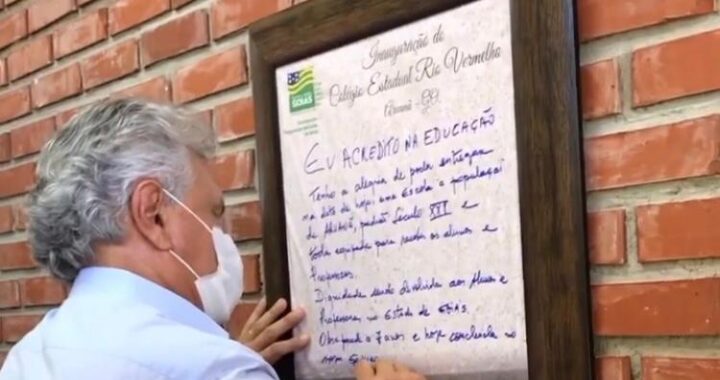 Inauguração do
Colégio Estadual Rio Vermelho
Aruanã - GO.
GOIÁS
EU ACREDITO NA EDUCAÇÃO
Tenho a alegria de poder entregar
na data de hoje, uma Escola a população
de Aruanã, padrão Século XXI e
toda equipada para receber os alunos e
Professores.
Dignidade sendo devolvida aos Alunos e
Professores, no Estado de GOIÁS.
Obra parada a 7 anos e hoje concluída no